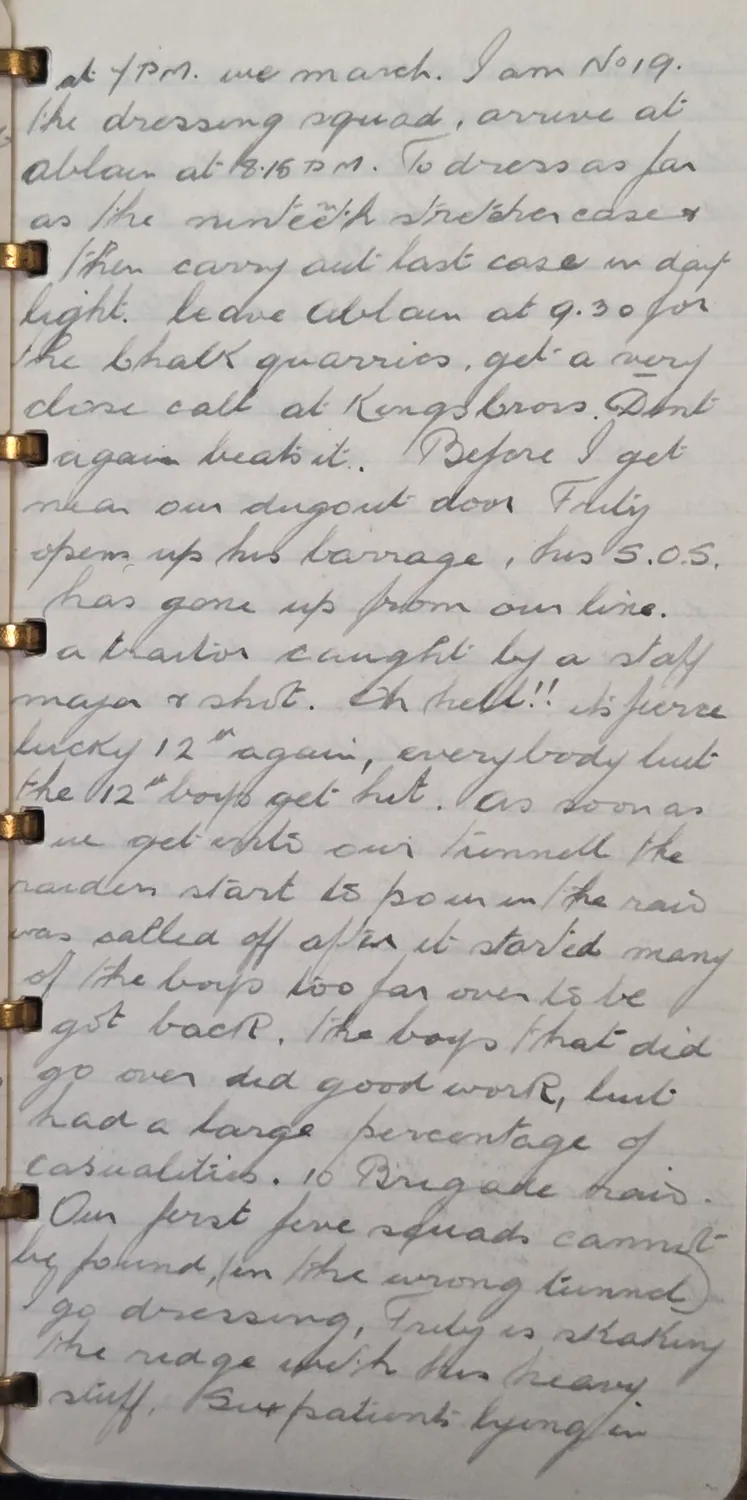 at 7 P.M. we march. I am No 19.
the dressing squad, arrive at
ablain at 8.15 P.M. To dress as far
as the ninteenth stretcher case &
then carry out last case in day
light. leave Ablain at 9.30 for
the Chalk quarries, get a very
close call at Kings Cross. Dont
again beats it. Before I get
near our dugout door Fritz
opens up his barrage, his S.O.S.
has gone up from our line.
a traitor caught by a staff
major & shot. Oh hell!! its fierce
lucky 12th again, everybody but
the 12th boys get hit. as soon as
we get into our tunnell the
raiders start to pour in the raid
was called off after it started many
of the boys too far over to be
got back. the boys that did
go over did good work, but
had a large percentage of
casualities. 10 Brigade raid.
Our first five squads cannot
be found, (in the wrong tunnel)
I go dressing, Fritz is shaking
the ridge with his heavy
stuff. Six patients lying in